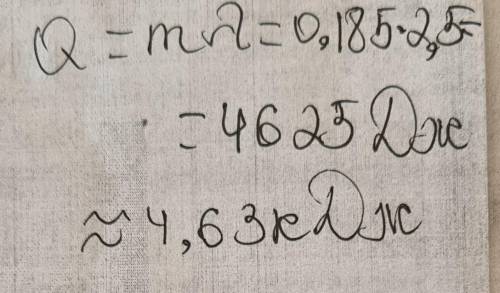 Q = mλ = 0,185·2,5=
= 4625 Дж
≈ 4,63кДж